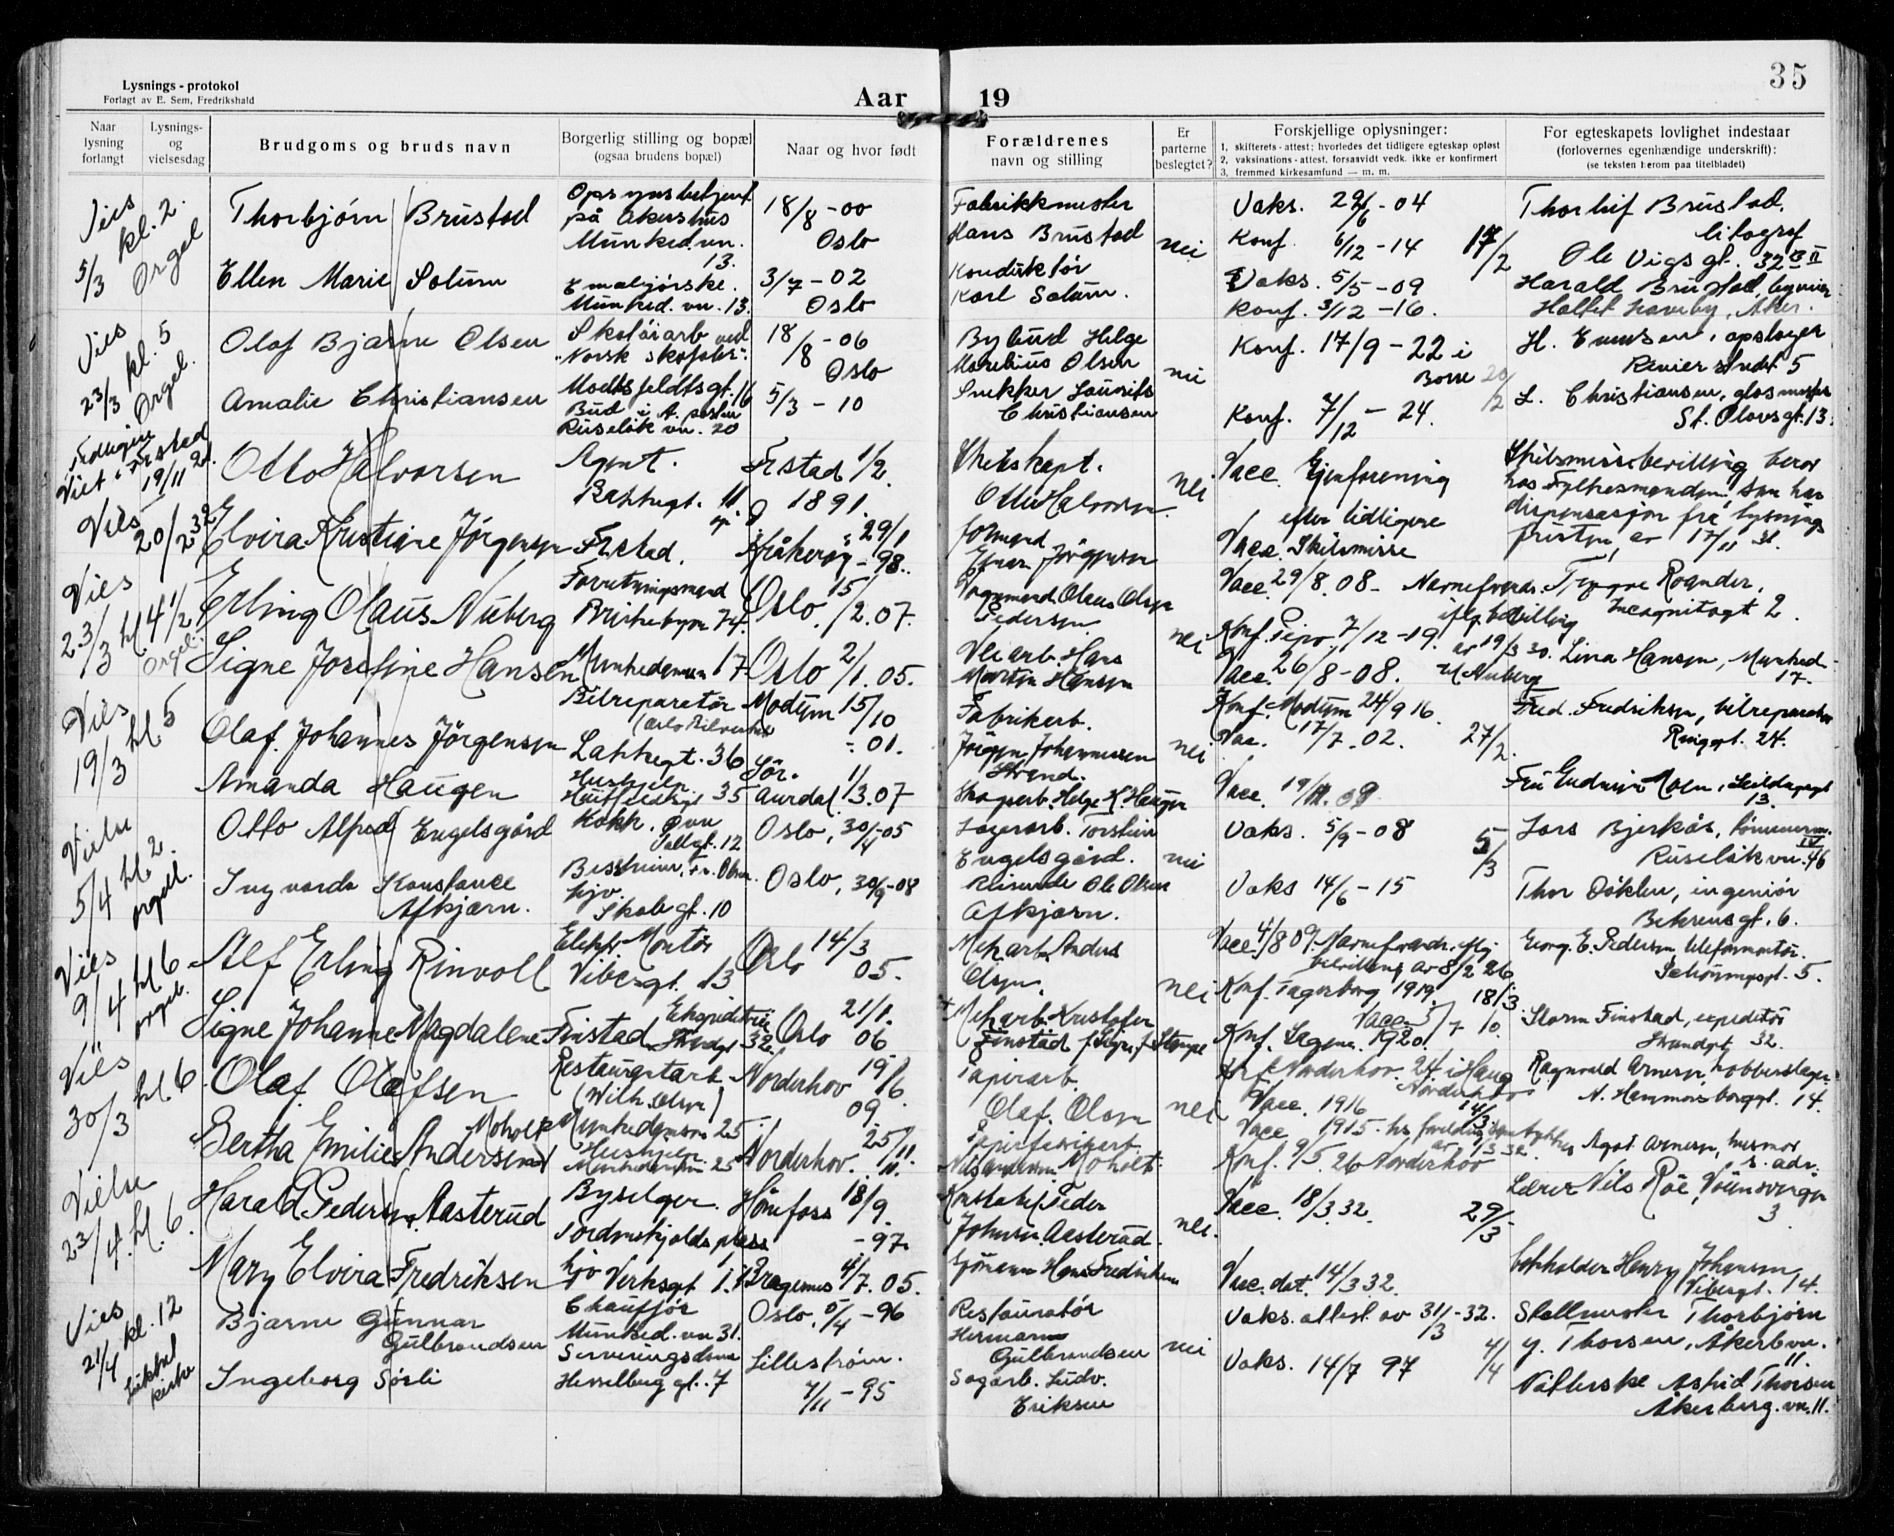 Lysnings - protokol
Forlagt av E. Sem, Fredrikshald
Aar 19
35
Naar lysning forlangt
Lysnings- og vielsesdag
Brudgoms og bruds navn
Borgerlig stilling og bopæl
(ogsaa brudens bopæl)
Naar og hvor født
Forældrenes
navn og stilling
Er parterne beslegtet?
Forskjellige oplysninger:
1. skifterets - attest; hvorledes det tidligere egteskap opløst
2. vaksinations - attest, forsaavidt vedk. ikke er konfirmert
3. fremmed kirkesamfund — m. m.
For egteskapets lovlighet indestaar
(forlovernes egenhændige underskrift):
(se teksten herom paa titelbladet)
Vies kl. 2.
5/3 Orgel
Thorbjørn Brustad
Opsynsbetjent
på Akershus
Munked.vn.
13.
18/8 -00
Oslo
Fabrikkmester
Hans Brustad
nei
Vaks. 29/6 - 04
Konf. 6/12 - 14
17/2
Thorleif Brustad,
litograf
Ole Vigs gt. 32
Ellen Marie Solum
Munked. vn. 13.
3/7 - 02
Oslo
Konduktør
Karl Solum.
Vaks. 5/5 - 09
Konf. 3/12 - 16.
Harald Brustad,
Aker.
Vies kl. 5
23/3 Orgel.
Olaf Bjarne Olsen
Skotøiarb. ved
18/8 - 06
Oslo
Bybud Helge
Marelius Olsen
nei
Konf. 17/9 - 22 i
Borre
H. Evensen, opslager
5
Amalie Christiansen
Bud i A.
Ruseløk vn. 20
5/3 - 10
Snekker Laurits
Christiansen
Konf. 7/12 - 24.
L. Christiansen, glasmester
St. Olavsgt. 13.
Viet i Frstad
19/11 21.
Otto Halvorsen
Agent.
Bakkegt. 11
Frstad 1/2
1891.
Otto Halvorsen.
nei
Vacc. Gjenforening
efter tidligere
Skilsmissebevilling beror
hos Fylkesmannen som har
dispensasjon fra lysnings
fristen av 17/11 31.
Vies
20/2 32
Elvira Kristiane Jørgensen
Frstad.
29/1
Kråkerøy - 98.
Formand
Einar Jørgensen
Vacc. Skilsmisse
Vies
23/3 kl 4 1/2
Orgel
Erling Olaus Nuberg
Forretningsmand
Briskebyvn 74.
Oslo. 15/2. 07.
Vognmand Olaus Olsen
Pedersen
nei
Vacc. 29/8. 08. - Navneforan.
Konf. 7/12 - 19. eflg. bevilling
av 19/3 30.
Trygve Roander,
Incognitogt 2.
Signe Josefine Hansen
Munkedamsvn 17
Oslo 2/1. 05.
Veiarb. Hans
Martin Hansen
Vacc. 26/8 - 08.
Nuberg
Lina Hansen, Munked.
17.
Vies
19/3 kl. 5
Olaf Johannes Jørgensen
Bilreparatør
Lakkegt. 36
Modum 15/10
- 01.
Fabrikarb.
Jørgen Johannessen
Strand.
nei
Konf. Modum 24/9 16.
Vac. 17/7. 02.
27/2
Fred. Fredriksen, bilreparatør
Ringgt. 24.
Amanda Haugen
Hushjelp.
35
Sør-
Aurdal 1/3. 07
Skogarb. Helge K. Haugen
Vacc. 19/11. 09
13.
Vielse
5/4 kl 2.
orgel.
Otto Alfred Engelsgård
Kokk.
12
Oslo, 30/4-05
Lagerarb. Torstein
Engelsgård.
nei
Vaks. 5/9 - 08
5/3
Lars Bjerkås,
Ruseløkvn. 46
Ingvarda Konstance
Afkjærn.
hjv.
Skolegt. 10
Oslo, 30/9-08
Reisende Ole Olsen
Afkjærn.
Vaks 14/6 - 15
Thor Døklen, ingeniør
Behrensgt. 6.
Vies
9/4 kl 6
orgel.
Alf Erling Rinvoll
Elektr. Montør
Vibesgt. 13
Oslo 14/3
05.
Mek.arb. Anders
Olsen.
nei
Vacc. 4/8 09. Navneforandr. eflg.
bevilling av 8/2 26
Konf. Fagerborg 1919.
18/3
Georg. E. Pedersen telefonmontør.
Schønningsgt. 5.
Signe Johanne Magdalene Finstad
Ekspeditrice
32
Oslo 21/1.
06
Mek.arb. Kristofer
Finstad
Vacc. 5/7 10
Konf. Sagene. 1920.
Storm Finstad, expeditør
Strandgt 32.
Vies
30/3 kl. 6.
Olaf Olafsen
Restaurantarb.
(Wilh. Olsen)
Munkedamsvn 25
Norderhov 19/6.
09
Papirarb.
Olaf Olsen
nei
Konf. Norderhov. 24 i Haug
Vacc. 1916
14/3
Ragnvald Arnesen, kobberslager
N. Hammersborggt. 14.
Bertha Emilie Andersen
Moholt
Hushjelp
Munkedamsvn. 25
Norderhov. 25/11.
11.
Nils Andersen Moholt
Vacc 1915
Konf. 9/5. 26 Norderhov
Agot Arnesen, husmor
s. adr.
Vielse
23/4. kl. 6.
Harald Pedersen Aasterud
Byselger.
Tordenskjolds plass
Hønefoss 18/9.
- 97.
Konstabel Peder
Johnsen Aasterud.
nei.
Vacc. 18/3 32.
29/3
Lærer Nils Røe,
3
Mary Elvira Fredriksen
hjv Verksgt. 1.
Bragernes 4/7. 05.
Sjømann Hans Fredriksen
Vac. dat. 14/3 32.
Bokholder Henry Johansen
Vibesgt. 14.
Vies kl. 12
21/4
kirke
Bjarne Gunnar
Gulbrandsen
Chauffør
Munked. vn 31.
Oslo. 5/4 - 96
Restauratør
Hermann
Gulbrandsen
nei
Vaks. attest av 31/3 - 32.
4/4
Stallmester Thorbjørn
G. Thorsen, Åkerb.vn.
11.
Ingeborg Sørli
Serveringsdame
Hesselberg gt. 7
Lillestrøm.
7/11 - 95
Sagarb. Ludv.
Eriksen
Vaks. 14/7 97
Astrid Thorsen
Åkerberg. vn. 11.